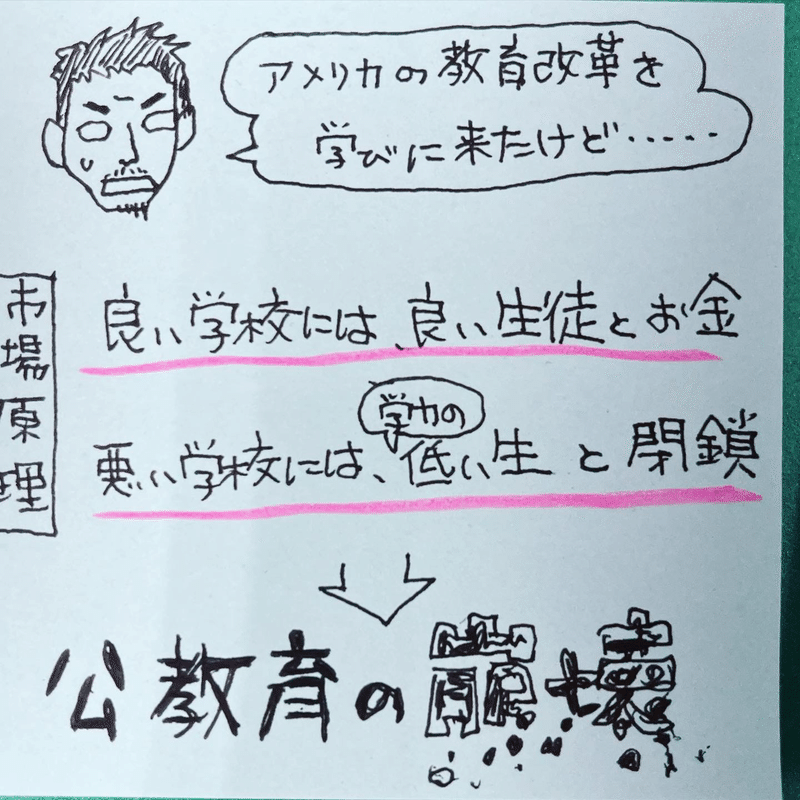 アメリカの教育改革を
学びに来たけど・・・・・
市場原理
良い学校には、良い生徒とお金
学力の
悪い学校には、低い生と閉鎖
公教育の崩壊